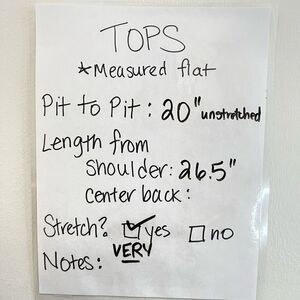 TOPS
*Measured flat
Pit to Pit: 20" unstretched
Length from
shoulder: 26.5"
center back:
Stretch? yes no
VERY
Notes: